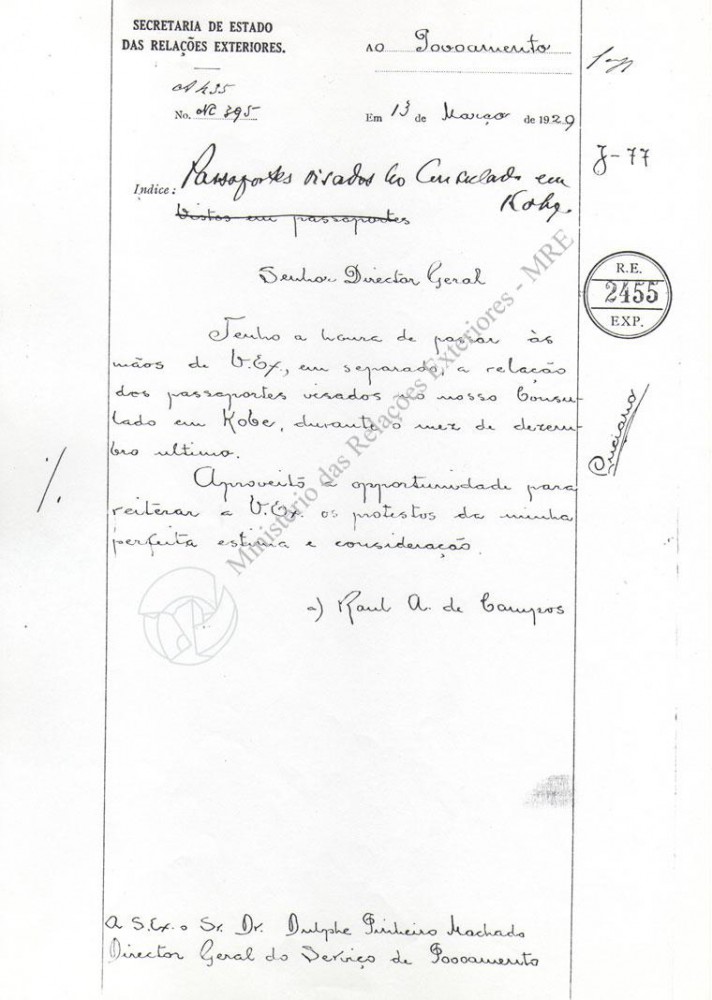 SECRETARIA DE ESTADO
DAS RELAÇÕES EXTERIORES.
AO Povoamento
No. NC 395
Em 13 de Março de 1929
J-77
Indice: Passaportes visados no Consulado em
Kobe.
Vistos em passaportes
Senhor Director Geral
R.E.
2455
EXP.
Tenho a honra de passar às
mãos de V.Ex., em separado, a relação
dos passaportes visados no nosso Consu-
lado em Kobe, durante o mez de dezem-
bro ultimo.
Aproveito a opportunidade para
reiterar a V.Ex. os protestos da minha
perfeita estima e consideração.
a) Raul A. de Campos
Ministério das Relações Exteriores - MRE
A S.Ex. o Sr. Dr. Dulphe Pinheiro Machado
Director Geral do Serviço de Povoamento